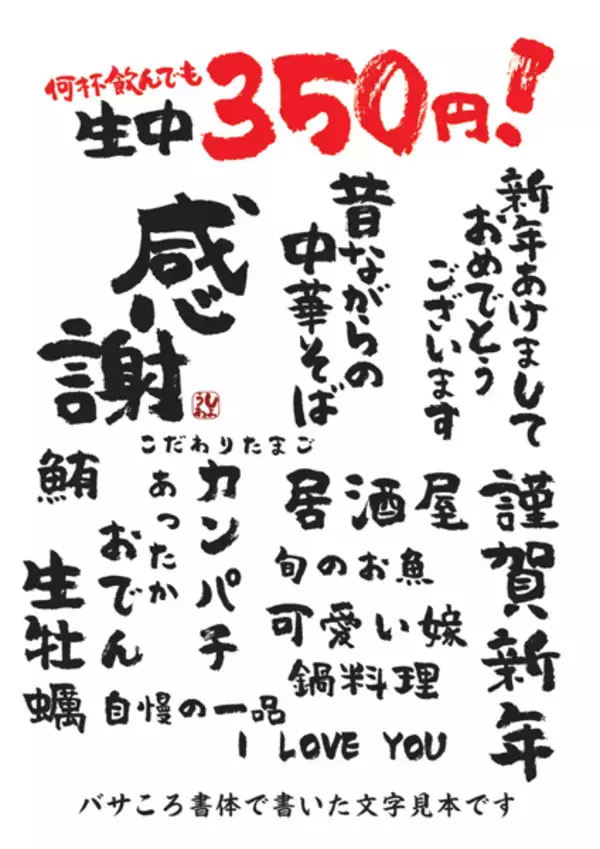 何杯飲んでも
生中350円!
新年あけまして
おめでとう
ございます
昔ながらの
中華そば
感謝
こだわりたまご
鮪
カンパチ
あったか
おでん
生牡蠣
居酒屋
旬のお魚
可愛い嫁
鍋料理
謹賀新年
自慢の一品
I LOVE YOU
バサころ書体で書いた文字見本です